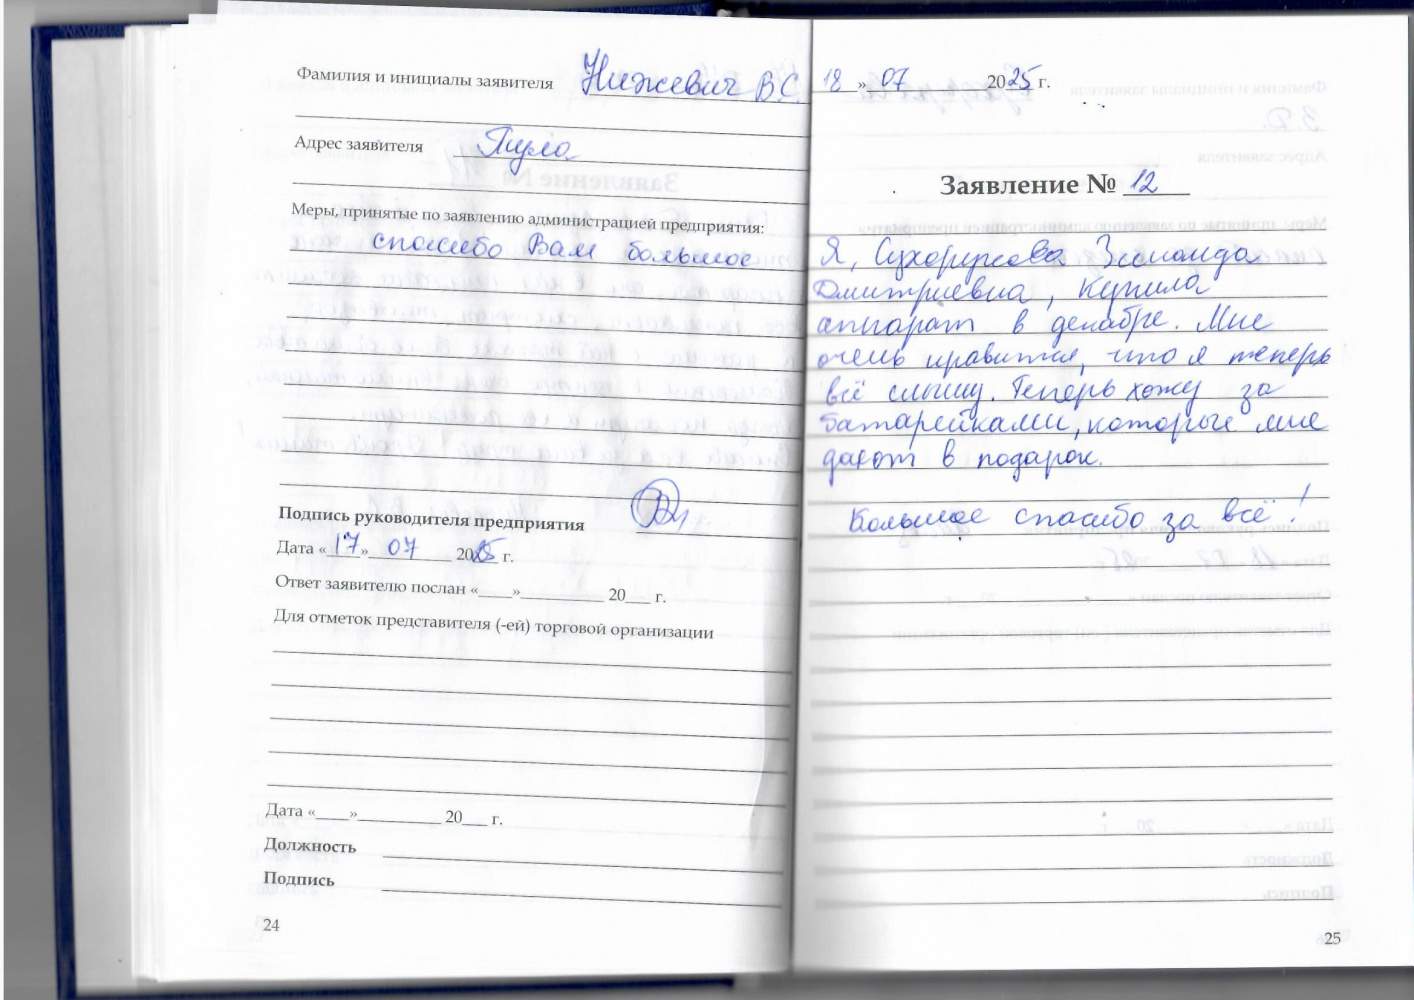 Фамилия и инициалы заявителя Нижевич В.С.
Адрес заявителя Тула
Меры, принятые по заявлению администрацией предприятия:
спасибо Вам большое
Подпись руководителя предприятия
Дата «17» 07 2025 г.
Ответ заявителю послан «____»__________ 20___ г.
Для отметок представителя (-ей) торговой организации
Дата «____»__________ 20___ г.
Должность
Подпись
24
18 » 07 2025 г.
Заявление № 12
Я, Сухорукова Зинаида
Дмитриевна, купила
аппарат в декабре. Мне
очень нравится, что я теперь
всё слышу. Теперь хожу за
батарейками, которые мне
дают в подарок.
Большое спасибо за всё!
25